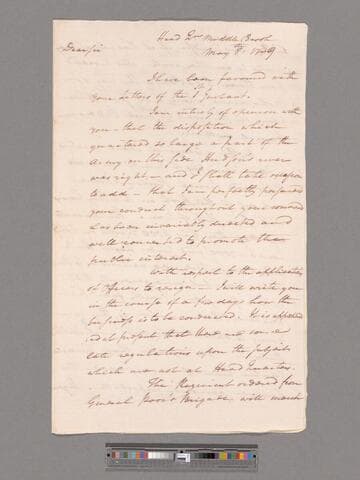 Head Qrs Middle Brook
May 8th 1779
Dear Sir
I have been favoured with
your Letters of the 1st Instant.
I am intirely of opinion with
you – that the disposition which
quartered so large a part of the
Army on this side Hudson's river
was right – and I shall take occasion
to add – that I am perfectly persuaded
your conduct throughout your command
has been invariably directed and
well concerted to promote the
public interest.
With respect to the applications
of officers to resign – I will write you
in the course of a few days how the
business is to be conducted. It is opposed
at present that there are some
late regulations upon the subject
which are not at Head Quarters.
The Regiment ordered from
General Poor's Brigade will march